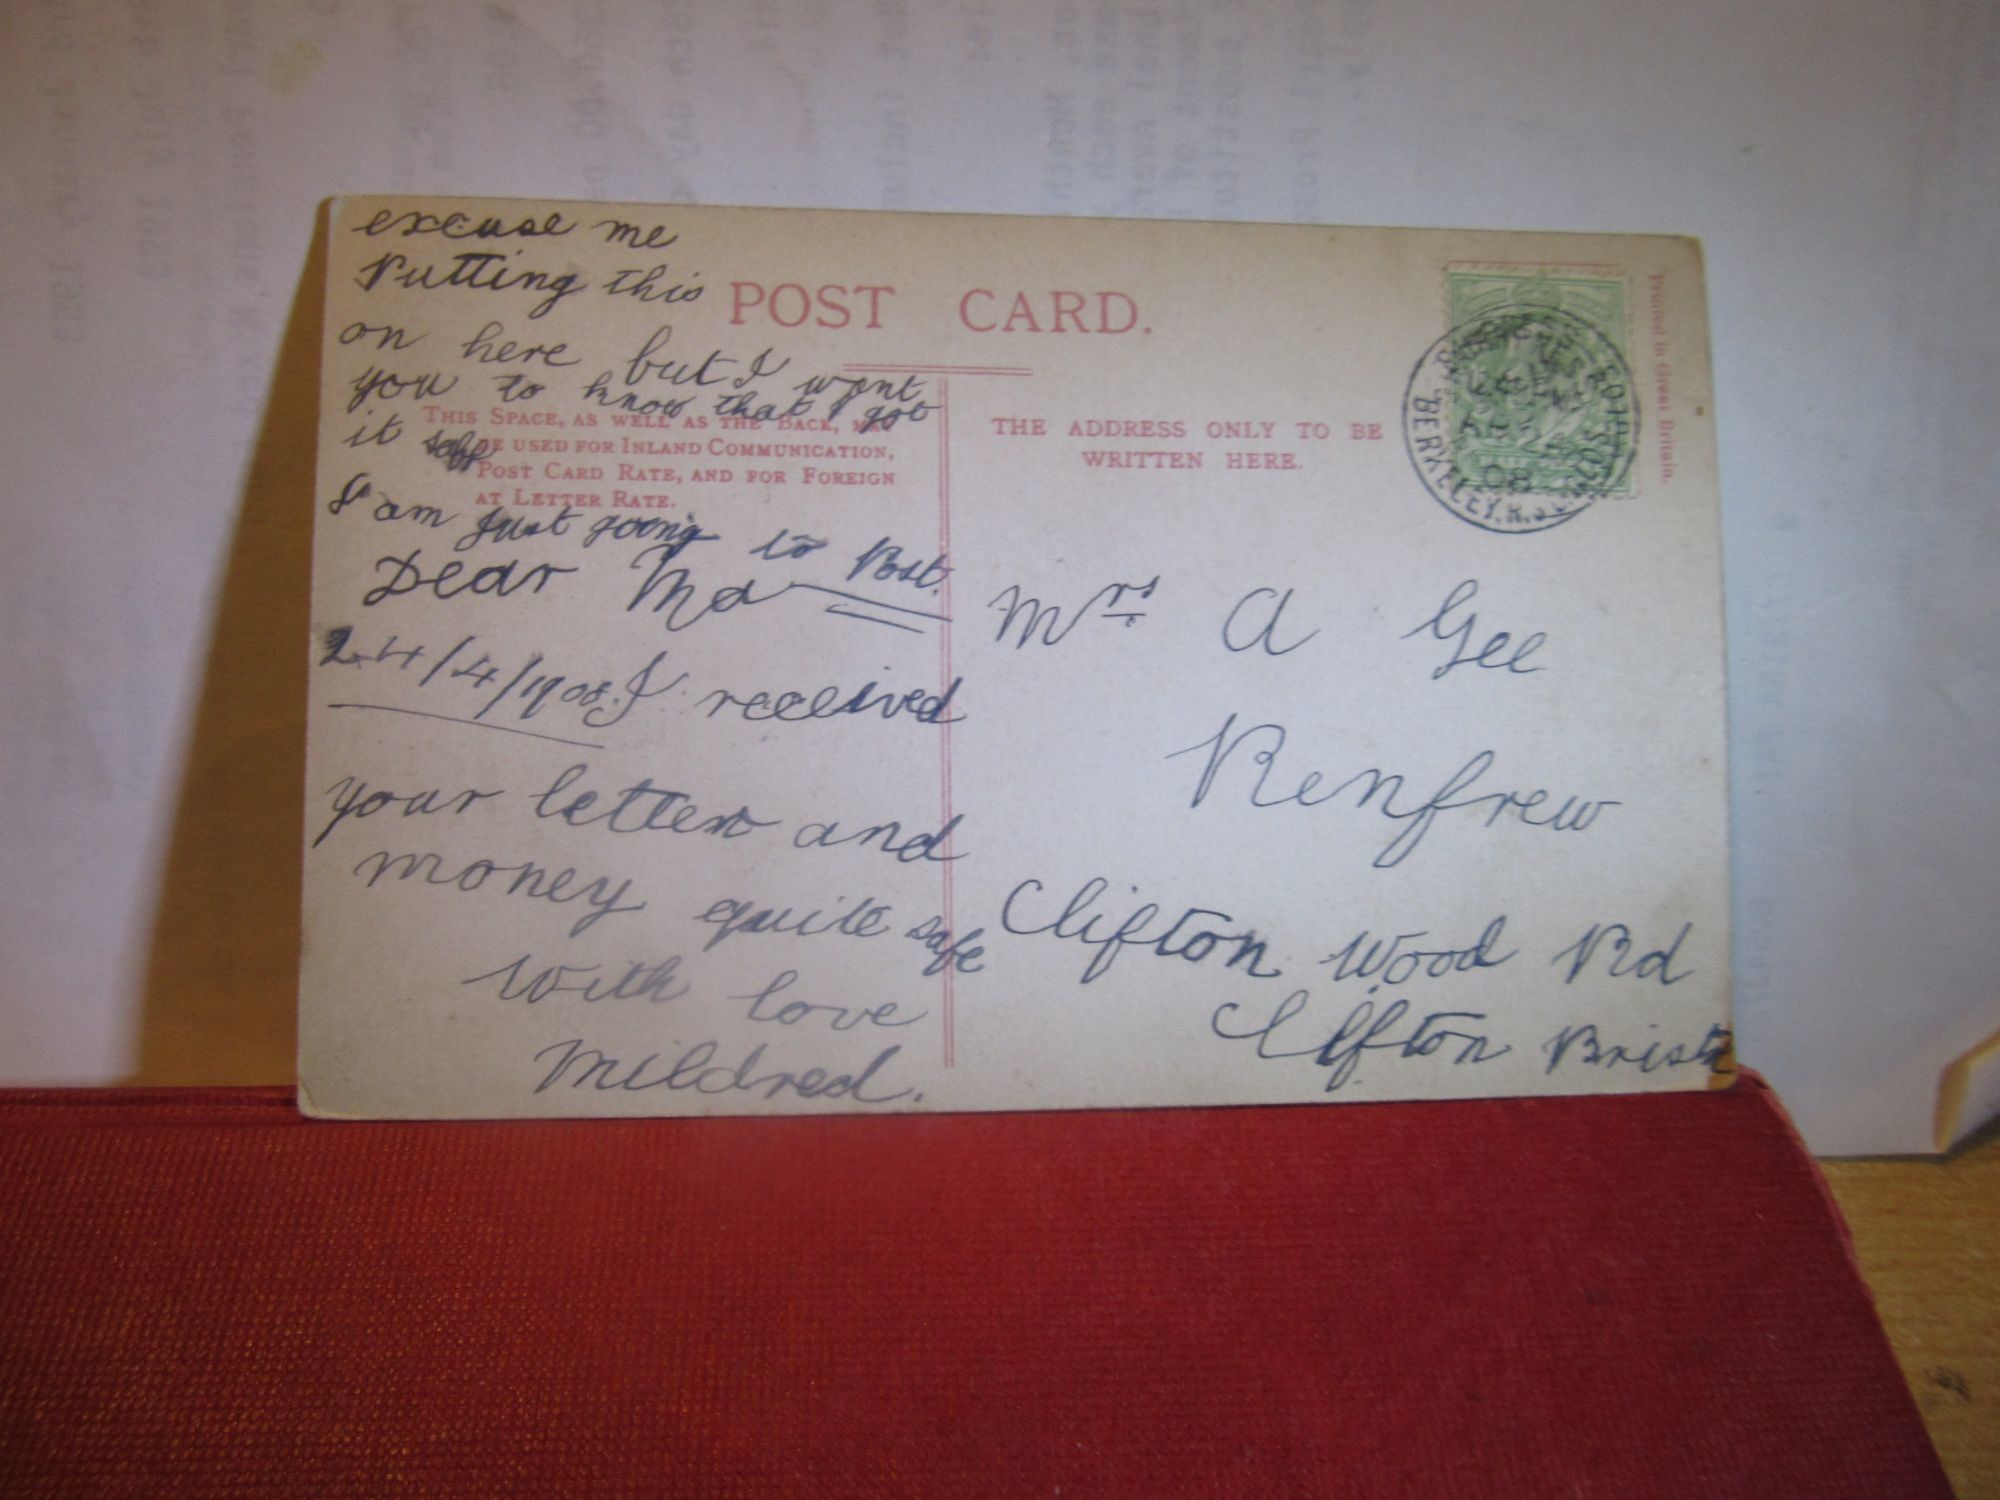 excuse me
Putting this
on here but I want
you to know that I got
it safe
I am just going to Post.
POST CARD.
THIS SPACE, AS WELL AS THE BACK, MAY
BE USED FOR INLAND COMMUNICATION,
POST CARD RATE, AND FOR FOREIGN
AT LETTER RATE.
Dear Ma
24/4/1908. I received
your letter and
money quite safe
with love
Mildred.
THE ADDRESS ONLY TO BE
WRITTEN HERE.
Mrs A Gee
Renfrew
Clifton Wood Rd
Clifton Bristol
Printed in Great Britain.
BERKELEY. R.S.O.
08